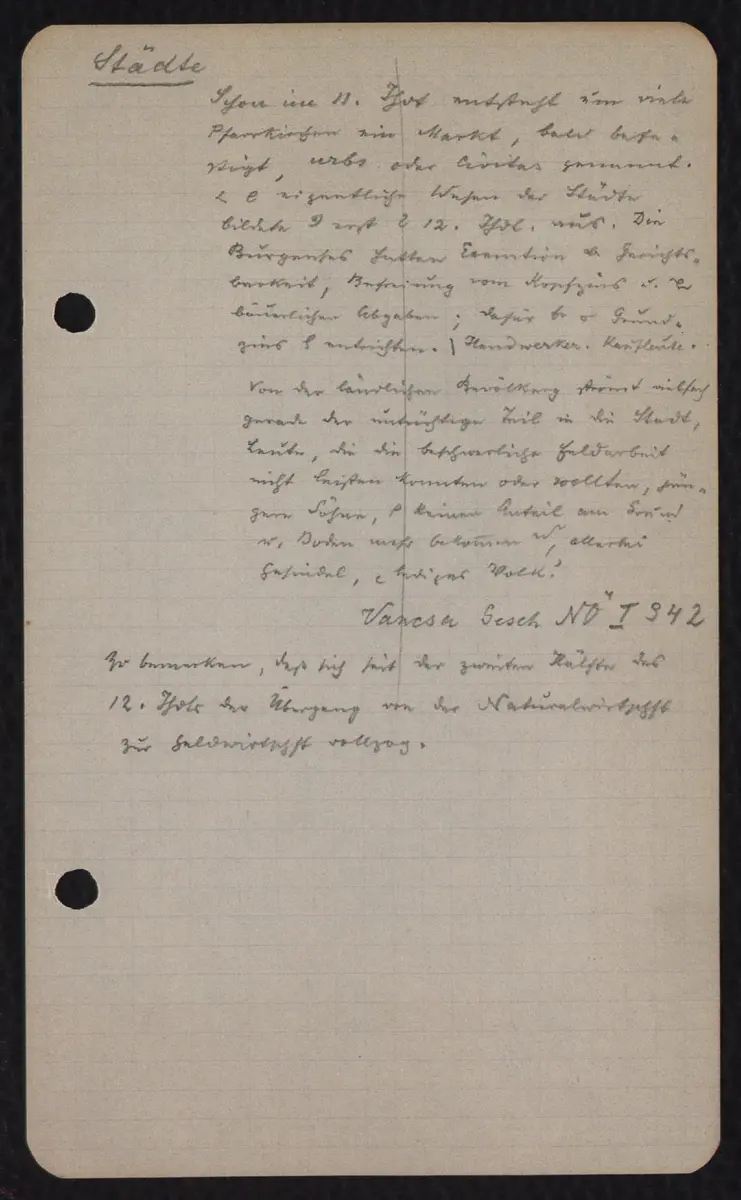 Städte
Schon im 11. Jhdt entsteht um viele
Pfarrkirchen ein Markt, bald befe=
stigt, urbs oder Civitas genannt.
eigentliche Wesen der Städte
bildete erst 12. Jhdt. aus. Die
Burgenses hatten Exemtion Gerichts=
barkeit, Befreiung vom Kopfzins u.
bäuerlichen Abgaben; dafür Grund=
zins entrichten. Handwerker. Kaufleute.
Von der ländlichen Bevölkerg strömt vielfach
gerade der untüchtige Teil in die Stadt,
Leute, die die beschwerliche Feldarbeit
nicht leisten konnten oder wollten, jün=
gere Söhne, keinen Anteil am Grund
u. Boden mehr bekommen, allerlei
Gesindel, lediges Volk."
Vancsa Gesch NÖ I 342
Zu bemerken, daß sich seit der zweiten Hälfte des
12. Jhdts der Übergang von der Naturalwirtschft
zur Geldwirtschft vollzog.